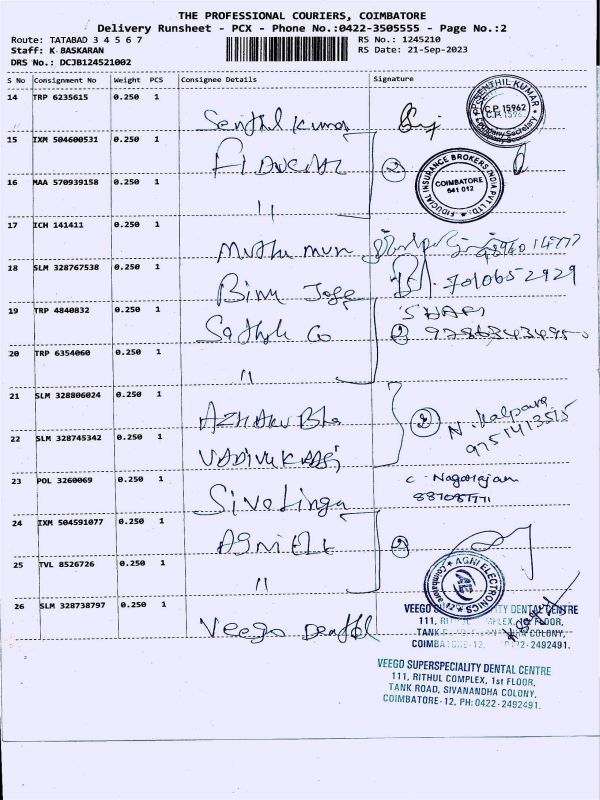 THE PROFESSIONAL COURIERS, COIMBATORE
Delivery Runsheet - PCX - Phone No.:0422-3505555 - Page No.:2
Route: TATABAD 3 4 5 6 7 RS No.: 1245210
Staff: K BASKARAN RS Date: 21-Sep-2023
DRS No.: DCJB124521002
S No Consignment No Weight PCS Consignee Details Signature
14 TRP 6235615 0.250 1
P.SENTHIL KUMAR C.P. 15962 Company Secretary
Senthil Kumar
15 IXM 504600531 0.250 1
2
FIDUCIAL INSURANCE BROKERS INDIA PVT. LTD. COIMBATORE 641 012
16 MAA 570939158 0.250 1
"
17 ICH 141411 0.250 1
Muthu
18 SLM 328767538 0.250 1
7010652929
Binu
19 TRP 4840832 0.250 1
Sathya Co 2
20 TRP 6354060 0.250 1
"
21 SLM 328806024 0.250 1
2 N. Kalpana
9751413515
22 SLM 328745342 0.250 1
23 POL 3260069 0.250 1
C. Nagarajan
Sivalinga
24 IXM 504591077 0.250 1
2
25 TVL 8526726 0.250 1
AGNI ELECTRONICS Coimbatore
"
26 SLM 328738797 0.250 1
Veego Dental
VEEGO DENTAL CENTRE
111, FLOOR,
TANK COLONY,
COIMB -12. 2492491.
VEEGO SUPERSPECIALITY DENTAL CENTRE
111, RITHUL COMPLEX, 1st FLOOR,
TANK ROAD, SIVANANDHA COLONY,
COIMBATORE-12, PH:0422-2492491.